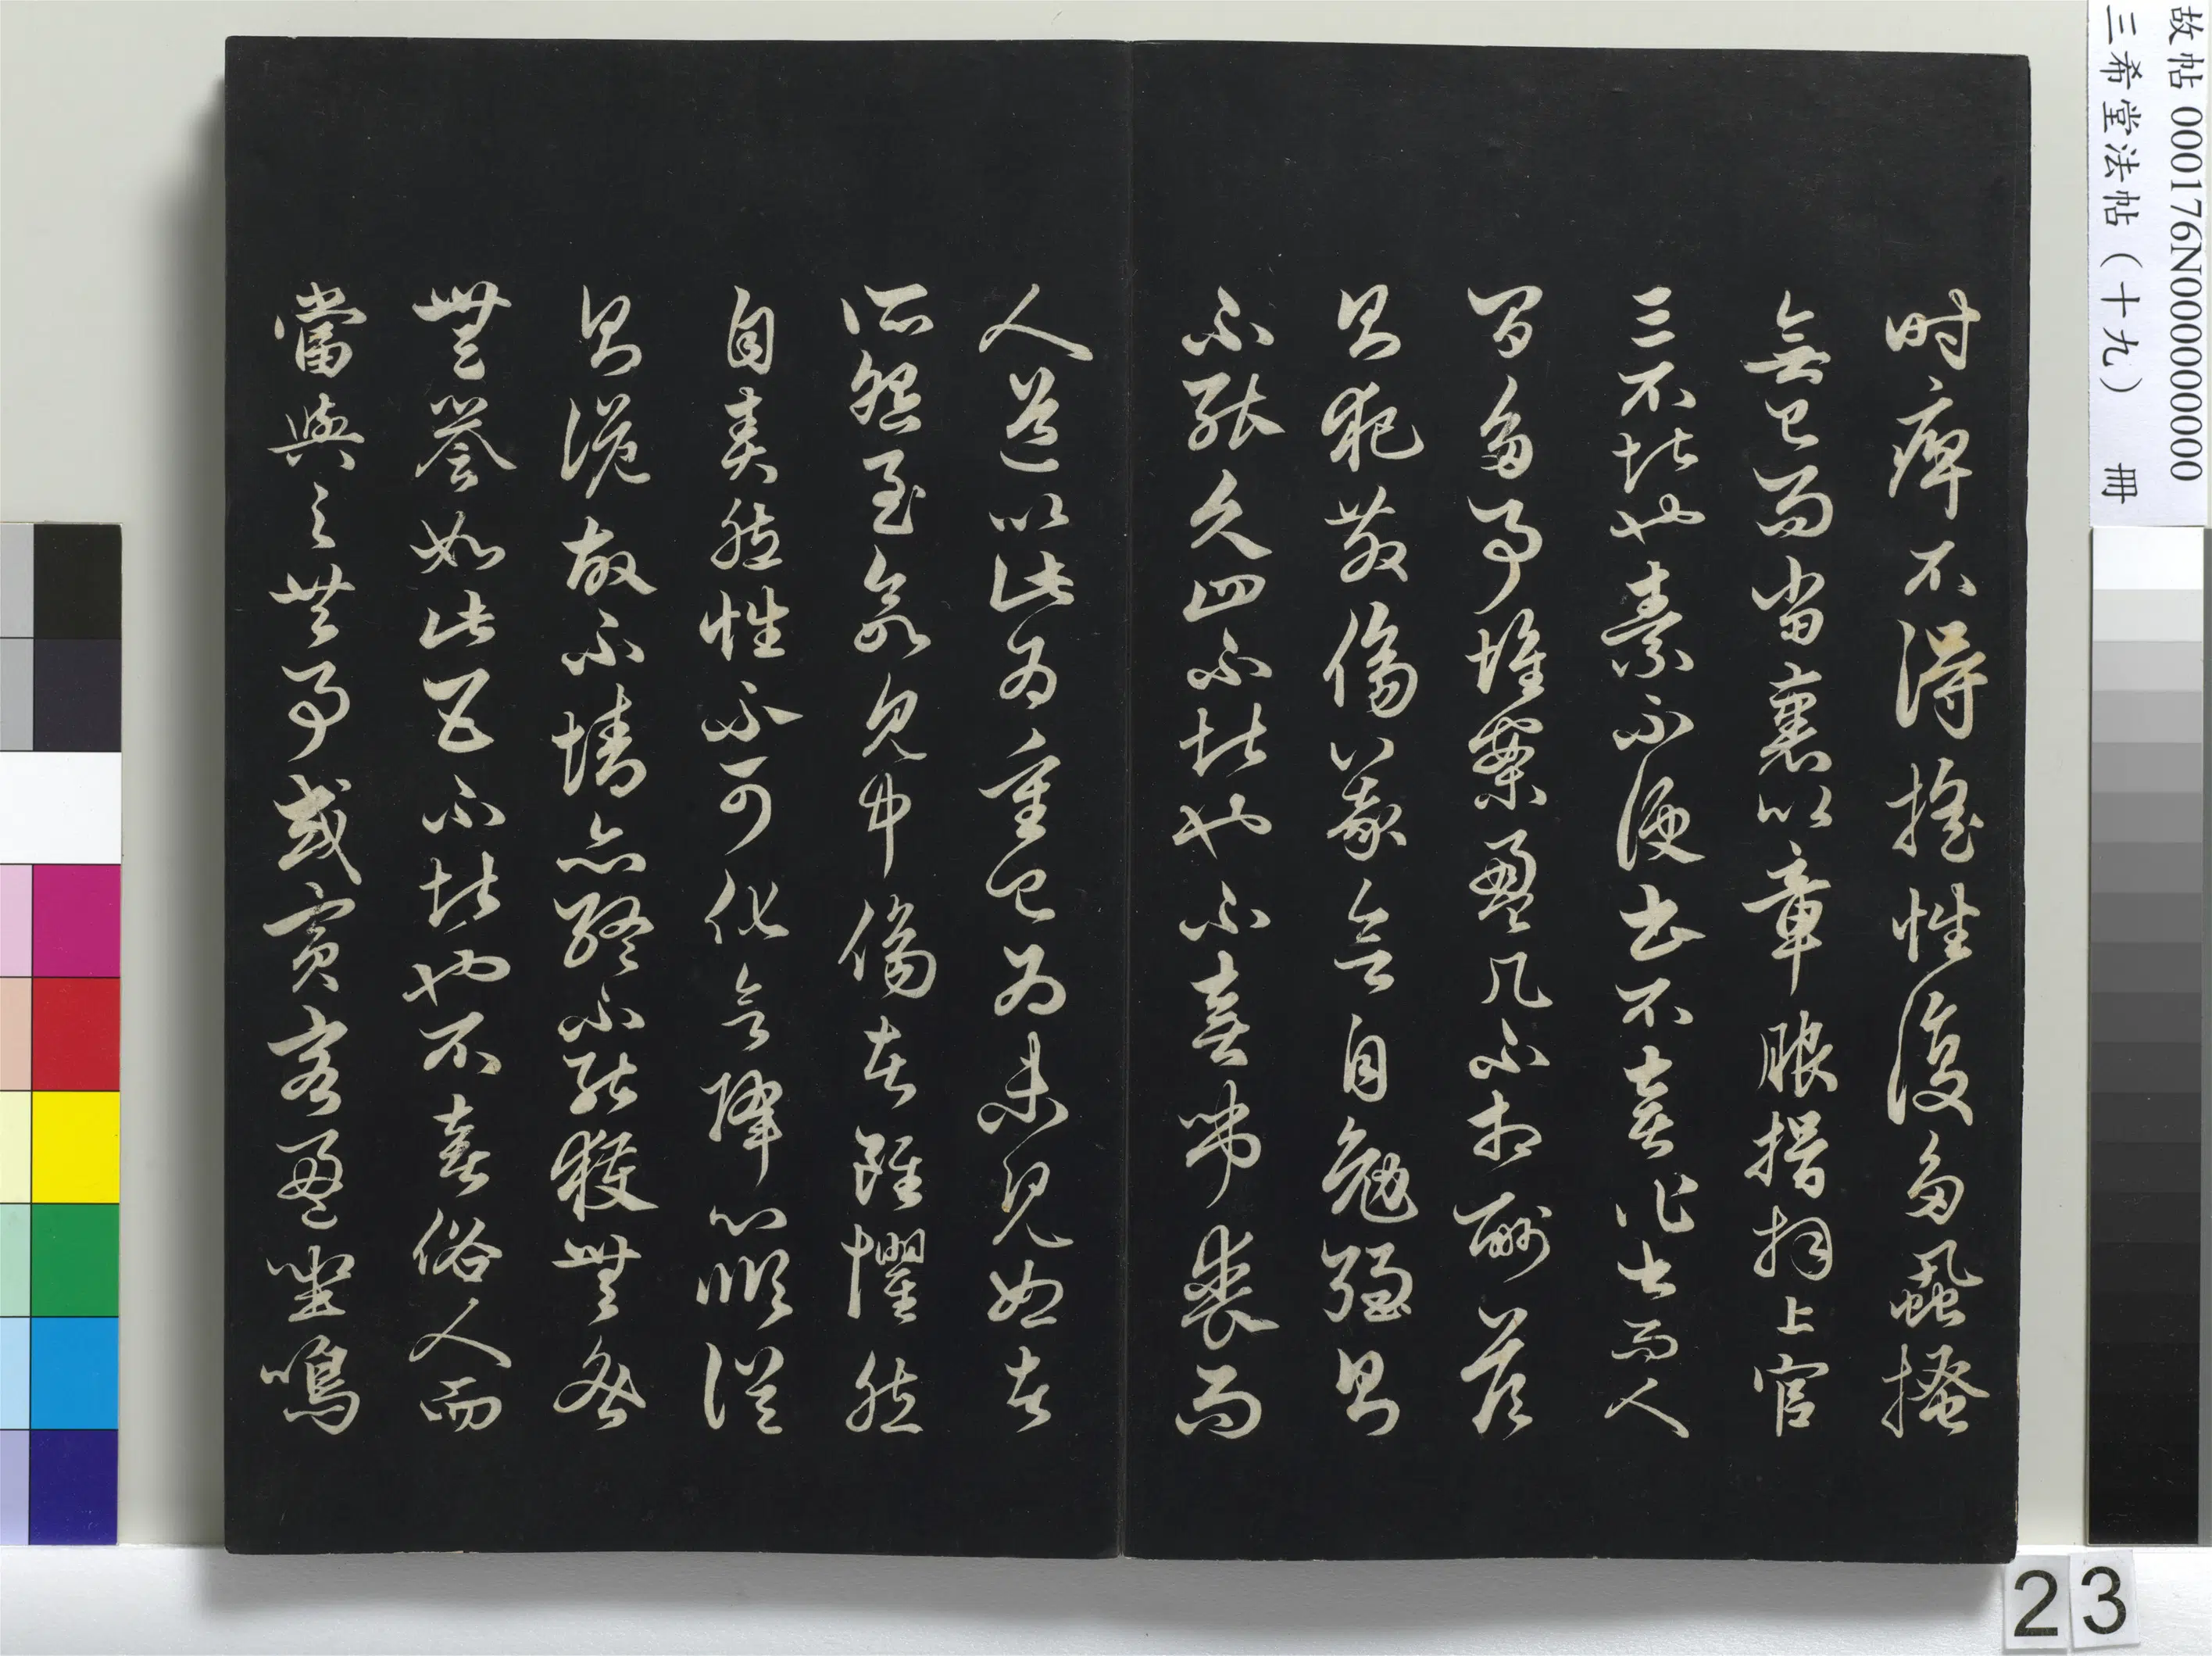 故帖 000176N000000000
三希堂法帖（十九） 冊
时痺不得搖性復多蝨搔
無已而当裹以章服揖拜上官
三不堪也素不便书不喜作书而人
间多事堆案盈几不相酬答
则犯教傷义欲自勉强则
不能久四不堪也不喜吊丧而
人道以此为重已为未见恕者
所怨至欲见中傷者雖懼然
自责然性不可化欲降心順從
则詭故不情亦終不能獲無咎
無譽如此五不堪也不喜俗人而
當與之共事或賓客盈坐鳴
23